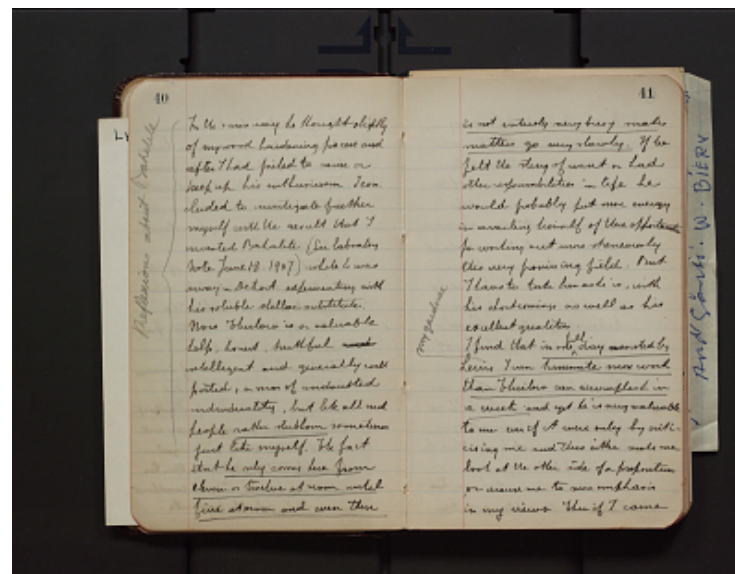 40
In the same way he thought slightly
of my wood hardening process and
after I had failed to rouse or
keep up his enthusiasm I con
cluded to investigate further
myself with the result that I
invented Bakelite (See laboratory
Note June 18 1907) while he was
away in Dehart experimenting with
his soluble shellac substitute.
Now Thurlow is a valuable
help, honest, truthful
intelligent and generally well
posted, a man of undoubted
individuality, but like all
people rather stubborn sometimes
just like myself. The fact
that he only comes here from
eleven or twelve at noon until
five and even then
Reflexions about Bakelite
41
is not entirely very busy makes
matters go very slowly. If he
felt the sting of want or had
other responsibilities in life he
would probably put more energy
in availing himself of these opportunities
for working out more strenuously
this very promising field. But
I have to take him as he is, with
his shortcomings as well as his
excellent qualities
I find that in one full day assisted by
I can more work
than Thurlow can accomplish in
a week and yet he is very valuable
to me even if it were only by criti-
cising me and thus make me
look at the other side of a proposition
or arouse me to more emphasis
in my views. Then if I come
my gardener
W. BIERY